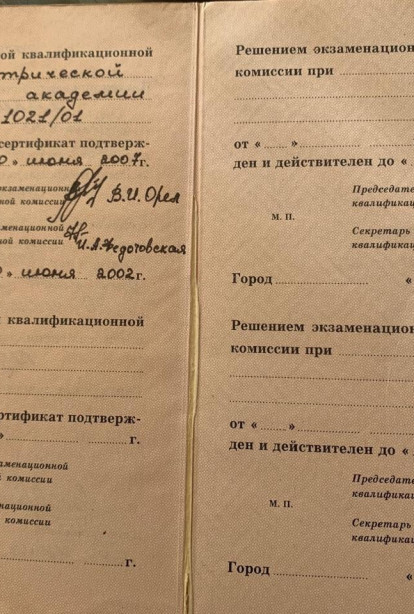 ой квалификационной
трической
академии
1021/01
сертификат подтверж-
0 » июня 2007г.
экзаменационной
ной комиссии В.И. Орел
аменационной
ной комиссии И.А. Федотовская
0 » июня 2002г.
й квалификационной
ртификат подтверж-
» г.
заменационной
й комиссии
национной
й комиссии
г.
Решением экзаменацион
комиссии при
от « »
ден и действителен до «
Председате
квалифика
М. П.
Секретарь
квалифика
Город «
Решением экзаменацион
комиссии при
от « »
ден и действителен до «
Председате
квалифика
М. П.
Секретарь
квалифика
Город «